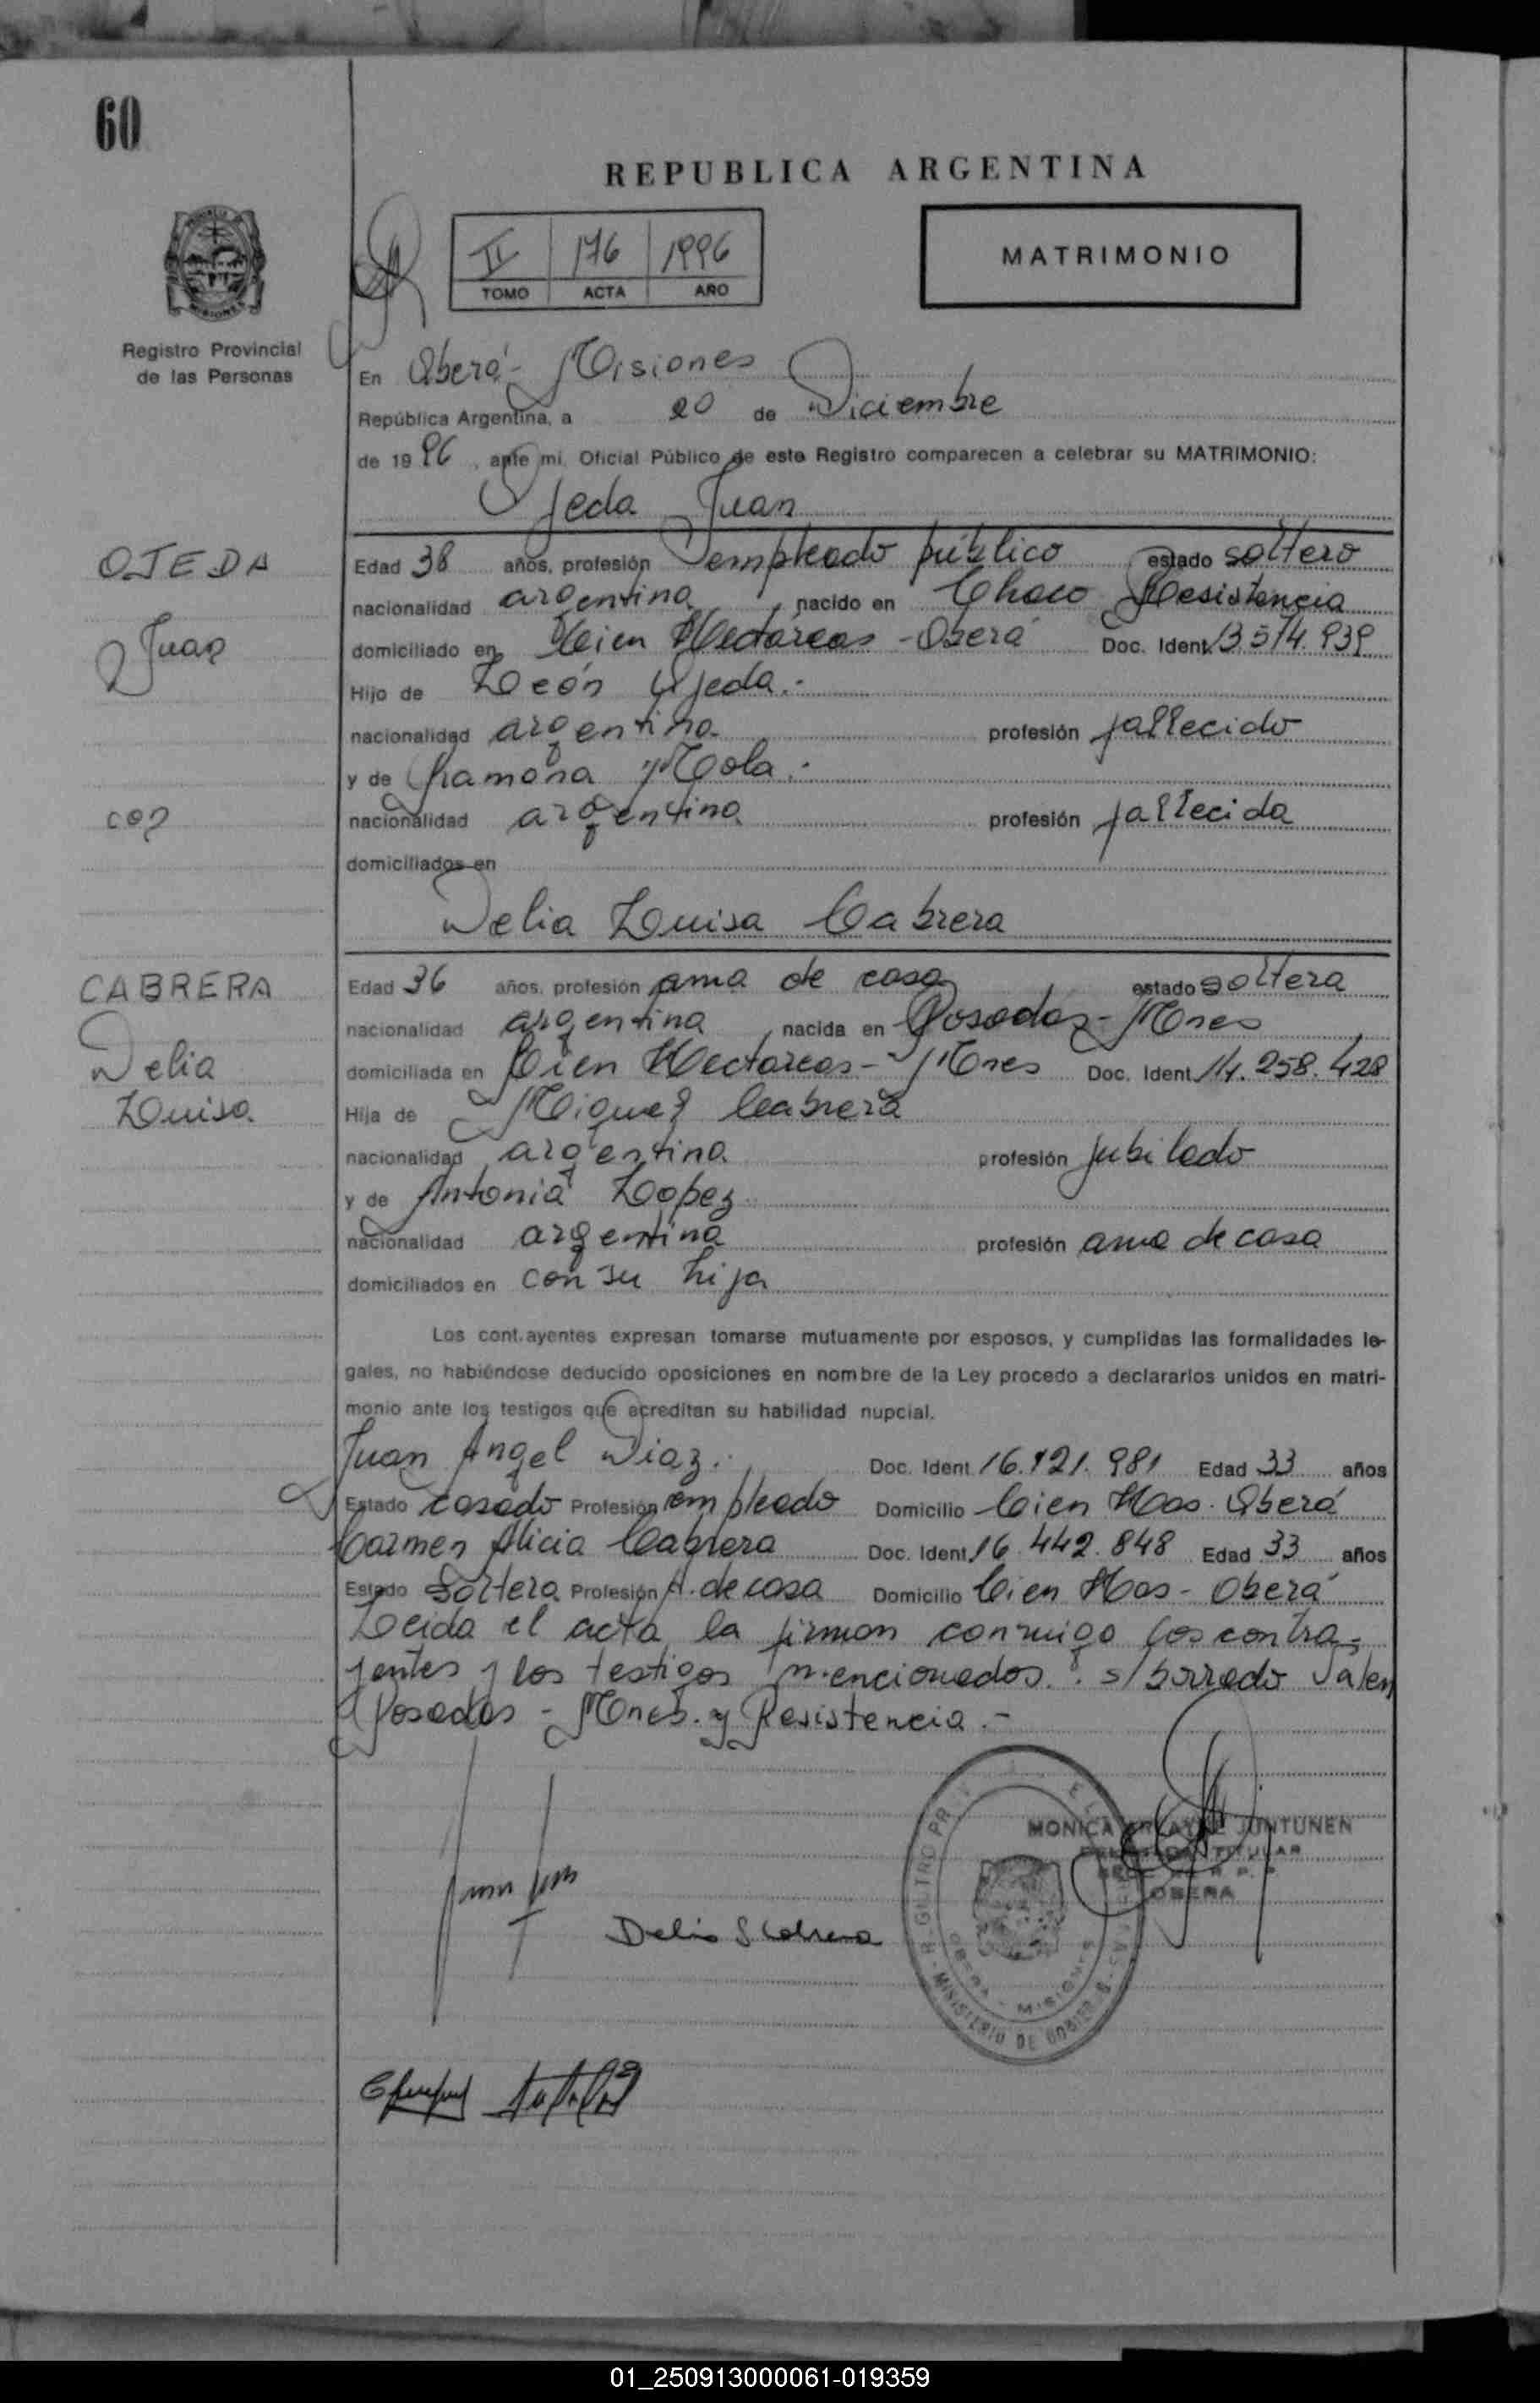 60
REPUBLICA ARGENTINA
II 176 1996
TOMO ACTA AÑO
MATRIMONIO
Registro Provincial
de las Personas
En Oberá - Misiones
República Argentina, a 20 de Diciembre
de 1996, ante mi, Oficial Público de este Registro comparecen a celebrar su MATRIMONIO:
Ojeda Juan
OJEDA
Juan
con
CABRERA
Delia
Luisa
Edad 38 años, profesión empleado público estado soltero
nacionalidad argentina, nacido en Chaco Resistencia
domiciliado en Cien Hectáreas - Oberá Doc. Ident. 13.514.939
Hijo de León Ojeda.-
nacionalidad argentina profesión fallecido
y de Ramona Mola.-
nacionalidad argentina profesión fallecida
domiciliados en
Delia Luisa Cabrera
Edad 36 años, profesión ama de casa estado soltera
nacionalidad argentina, nacida en Posadas - Mnes
domiciliada en Cien Hectareas - Mnes Doc. Ident. 14.258.428
Hija de Miguel Cabrera
nacionalidad argentina profesión jubilado
y de Antonia Lopez
nacionalidad argentina profesión ama de casa
domiciliados en con su hija
Los cont.ayentes expresan tomarse mutuamente por esposos, y cumplidas las formalidades le-
gales, no habiéndose deducido oposiciones en nombre de la Ley procedo a declararlos unidos en matri-
monio ante los testigos que acreditan su habilidad nupcial.
Juan Angel Diaz. Doc. Ident. 16.121.981 Edad 33 años
Estado casado Profesión empleado Domicilio Cien Has. Oberá
Carmen Alicia Cabrera Doc. Ident. 16.442.848 Edad 33 años
Estado Soltera Profesión A. de casa Domicilio Cien Has - Oberá
Leida el acta la firman conmigo los contra-
yentes y los testigos mencionados. s/borrado Valen
Posadas - Mnes. y Resistencia.-
MONICA JUNTUNEN
TITULAR
OBERA
MINISTERIO DE GOBIER
OBERA - MISIONES
Delia L Cabrera
01_250913000061-019359